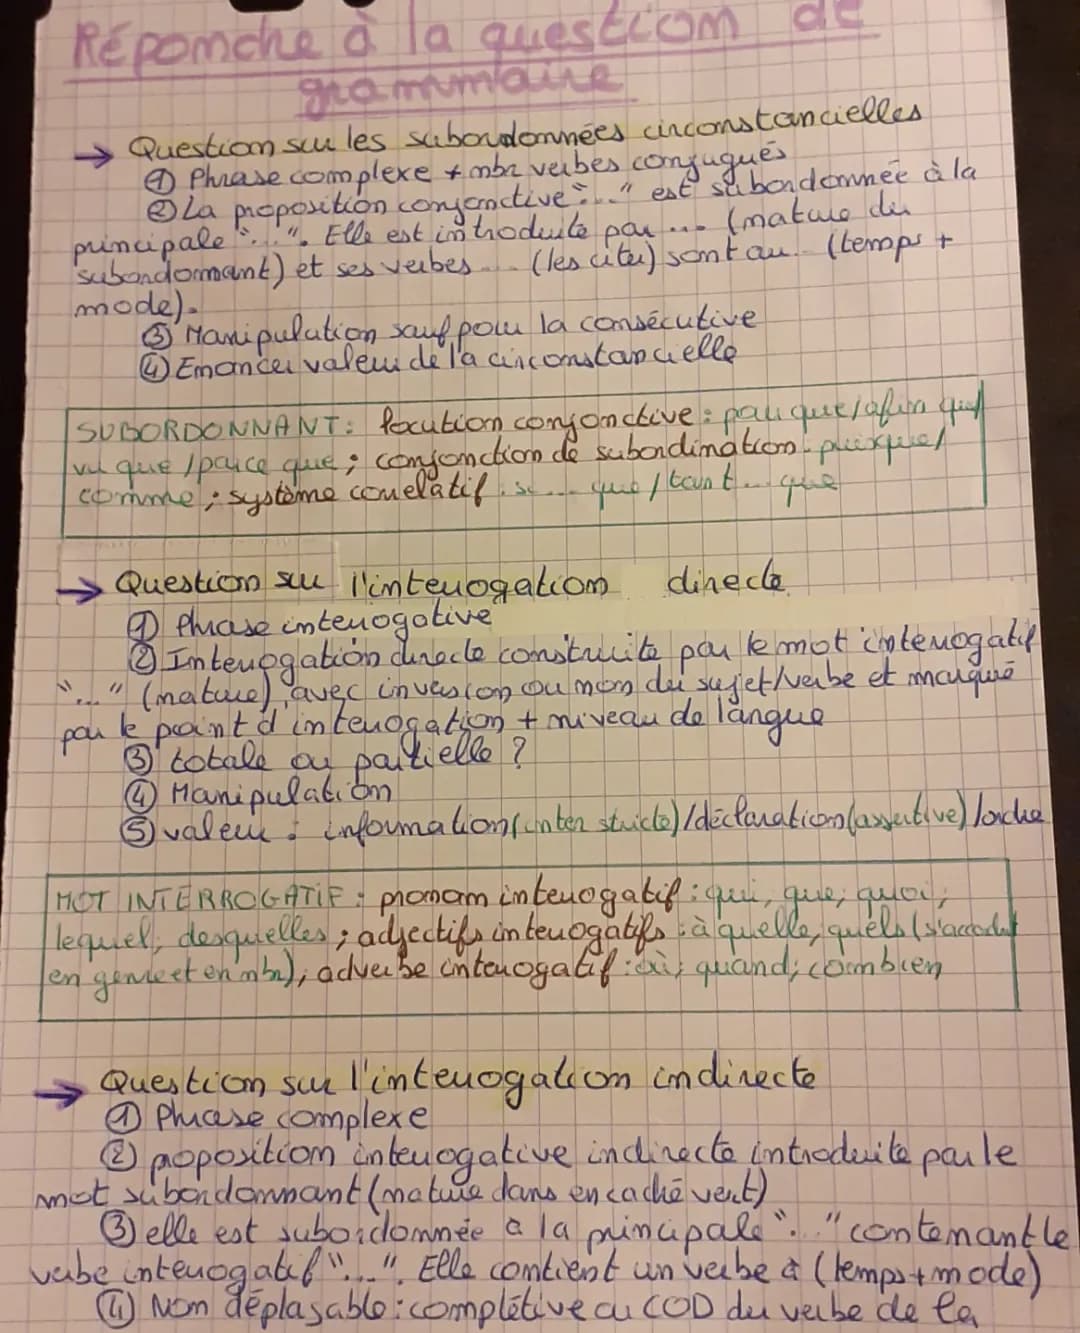 Réponche à la question de
grammaire
→ Question sur les subordonnées circonstancielles
① Phrase complexe + nbr verbes conjugués
② La proposition conjonctive "..." est subordonnée à la
principale "...". Elle est introduite par ... (nature du
subordonnant) et ses verbes ... (les citer) sont au... (temps +
mode).
③ Manipulation sauf pour la consécutive
④ Enoncer valeur de la circonstancielle
SUBORDONNANT : locution conjonctive : pour que / afin que /
vu que / parce que ; conjonction de subordination : puisque /
comme ; système corrélatif : si ... que / tant ... que
→ Question sur l'interrogation directe
① Phrase interrogative
② Interrogation directe construite par le mot interrogatif
"..." (nature), avec inversion ou non du sujet/verbe et marqué
par le point d'interrogation + niveau de langue
③ totale ou partielle ?
④ Manipulation
⑤ valeur : information (inter stricte) / déclaration (assertive) / ordre
MOT INTERROGATIF : pronom interrogatif : qui, que, quoi,
lequel, desquelles ; adjectifs interrogatifs : à quelle, quels (s'accordent
en genre et en nbr), adverbe interrogatif : où, quand, combien
→ Question sur l'interrogation indirecte
① Phrase complexe
② proposition interrogative indirecte introduite par le
mot subordonnant (nature dans encadré vert)
③ elle est subordonnée à la principale "..." contenant le
verbe interrogatif "...". Elle contient un verbe à (temps + mode)
④ Non déplaçable : complétive ou COD du verbe de la